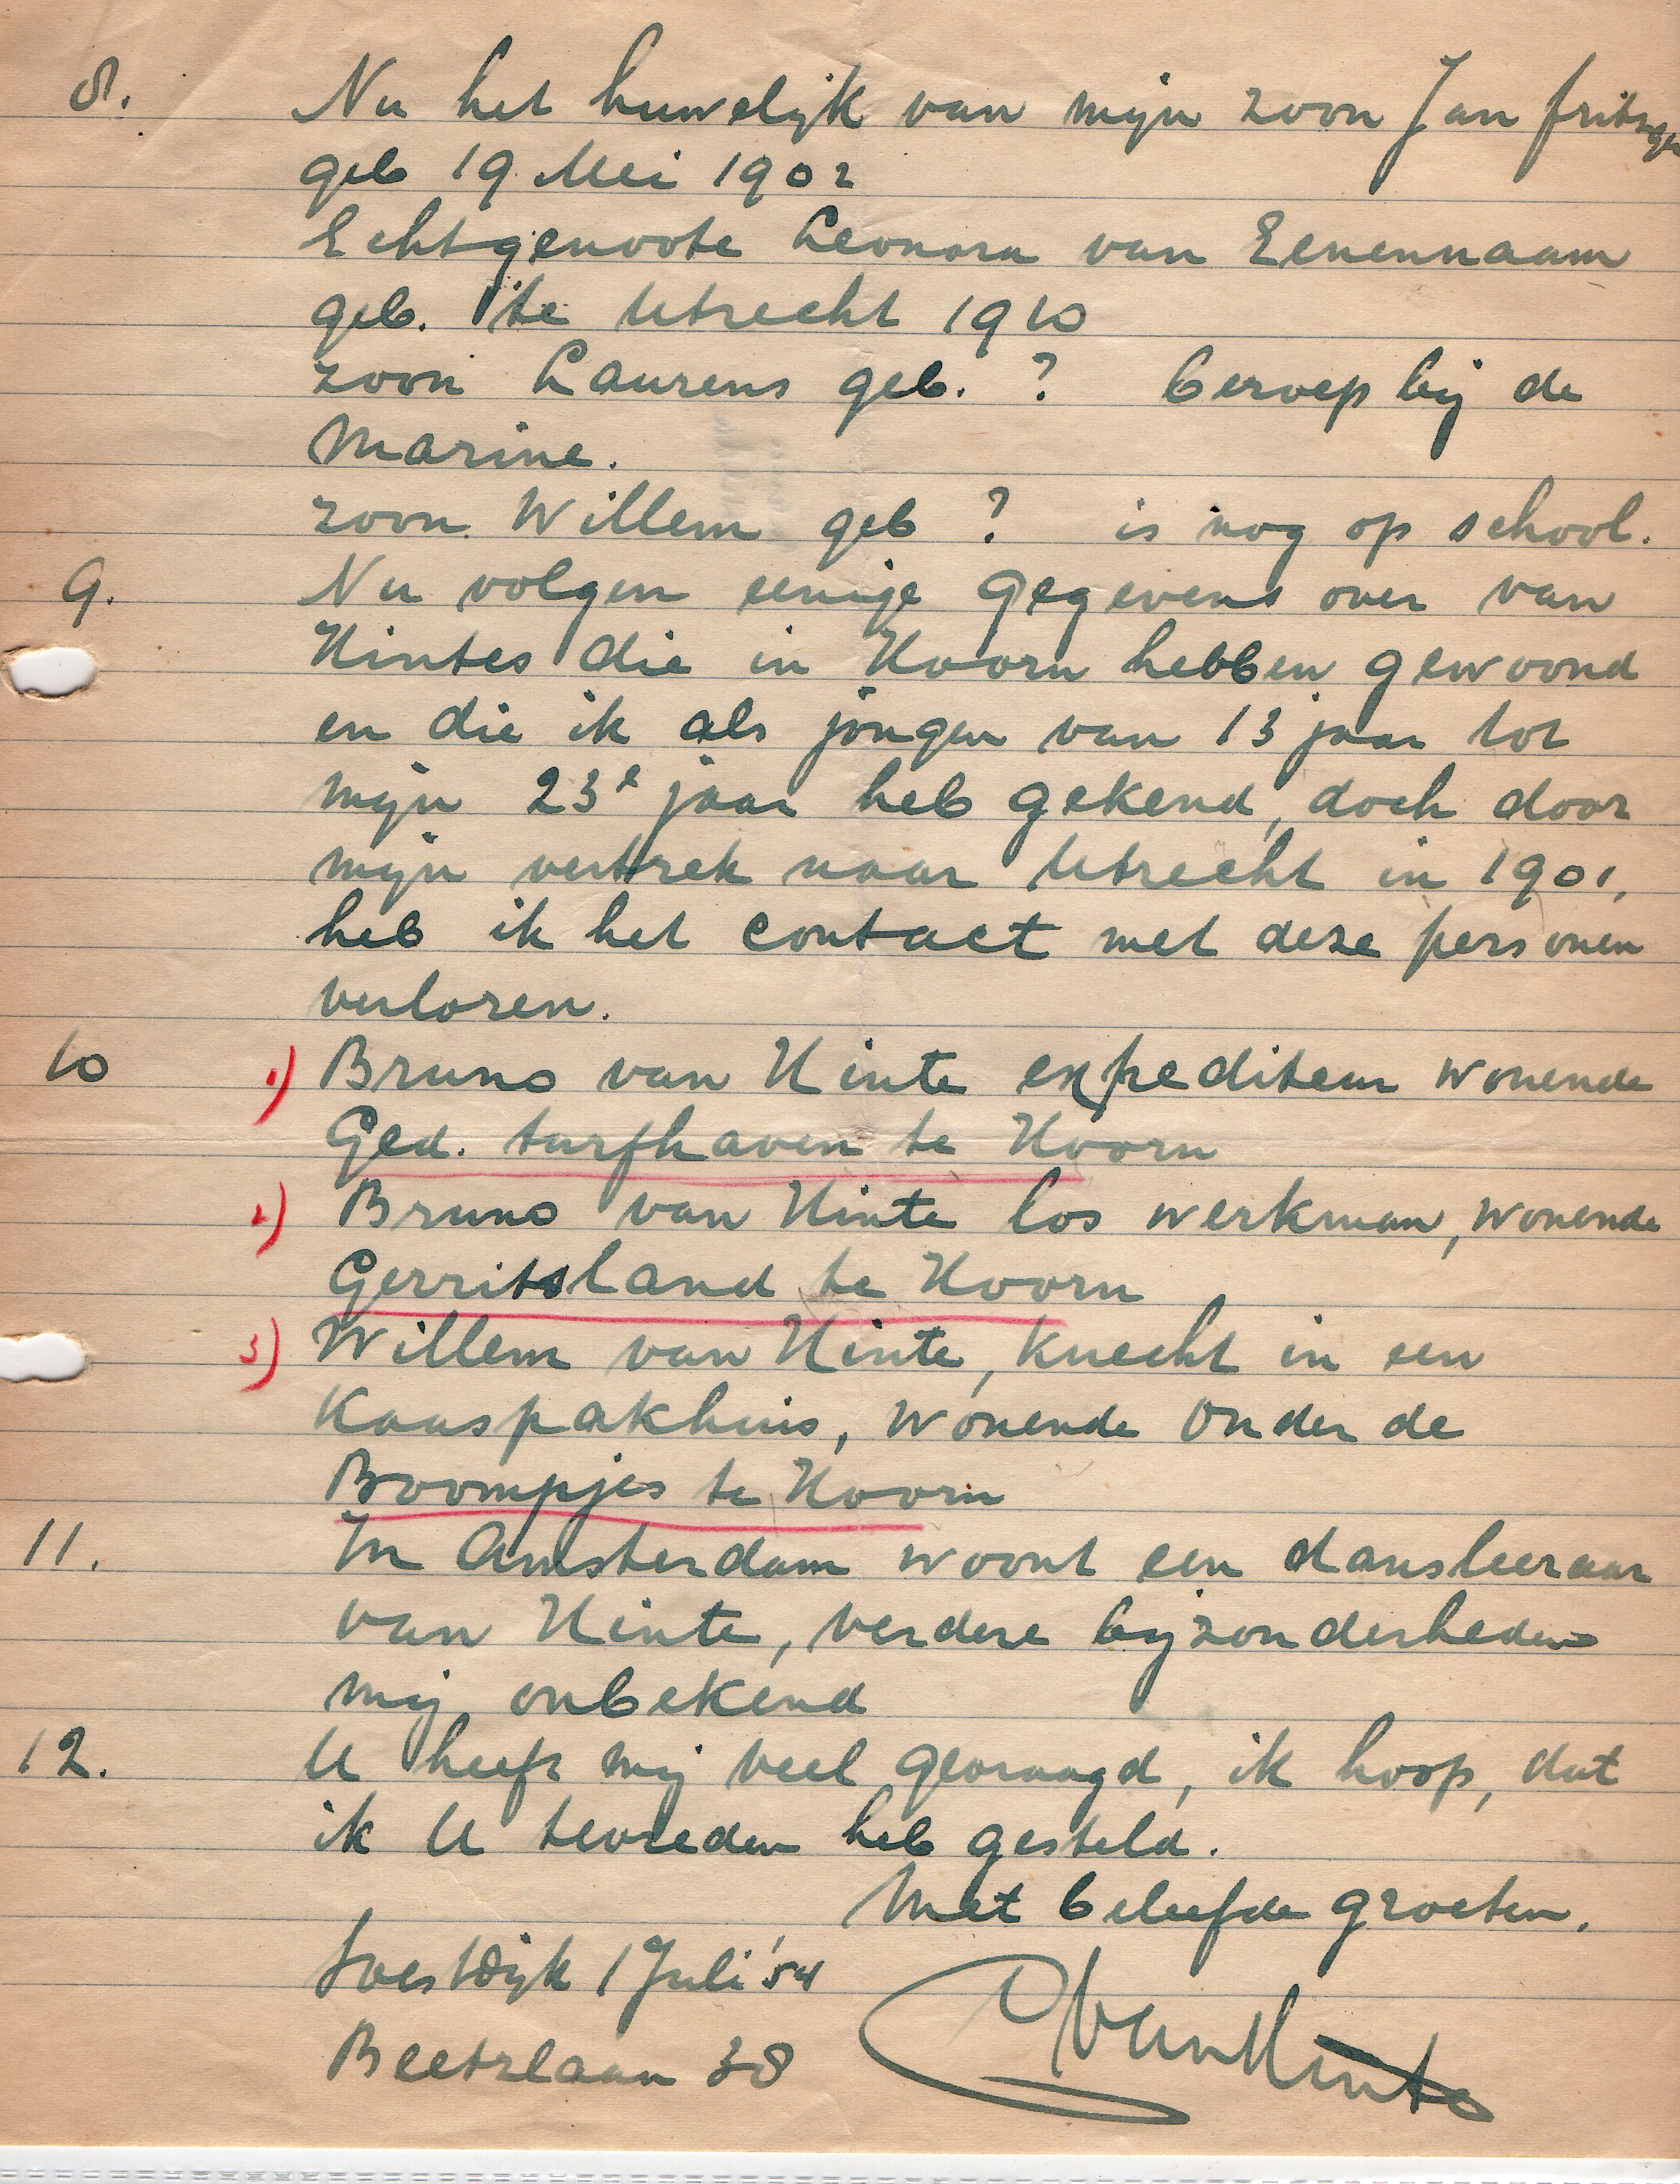 8. Nu het huwelijk van mijn zoon Jan frits
geb 19 Mei 1902
Echtgenoote Leonora van Eenennaam
geb. te Utrecht 1910
zoon Laurens geb. ? beroep bij de
Marine.
zoon Willem geb ? is nog op school.
9. Nu volgen eenige gegevens over van
Hintes die in Hoorn hebben gewoond
en die ik als jongen van 13 jaar tot
mijn 23e jaar heb gekend, doch door
mijn vertrek naar Utrecht in 1901,
heb ik het contact met deze personen
verloren.
10 1) Bruno van Hinte expediteur wonende
Ged. turfhaven te Hoorn
2) Bruno van Hinte los werkman, wonende
Gerritsland te Hoorn
3) Willem van Hinte, knecht in een
Kaaspakhuis, wonende Onder de
Boompjes te Hoorn
11. In Amsterdam woont een dansleeraar
van Hinte, verdere bijzonderheden
mij onbekend
12. U heeft mij veel gevraagd, ik hoop, dat
ik U tevreden heb gesteld.
Met beleefde groeten.
Soestdijk 1 Juli '54
Beetslaan 38 van Hinte